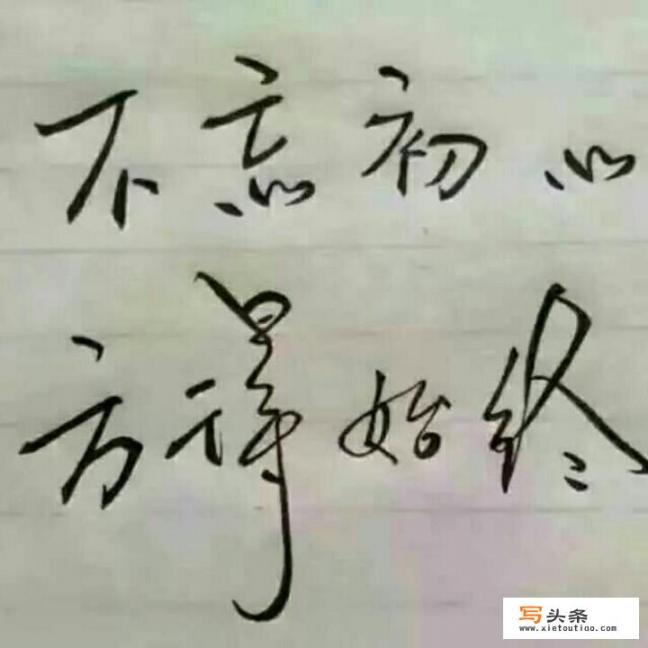 不忘初心
方得始终
写头条
www.xietoutiao.com